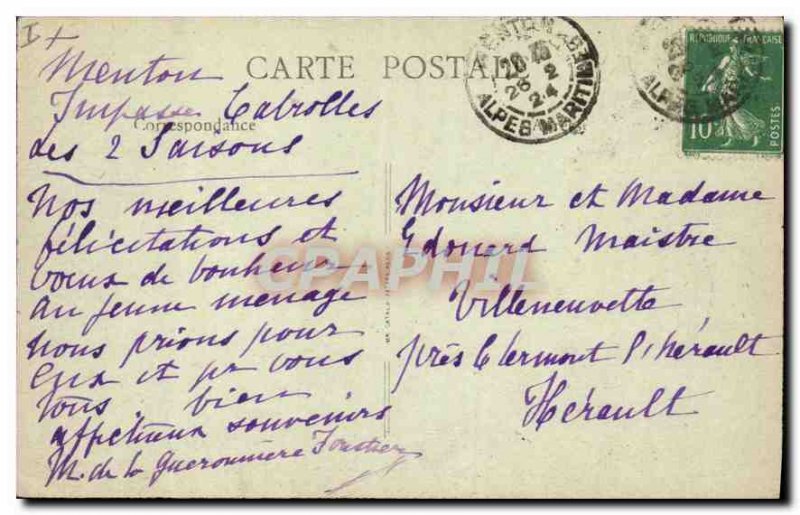 I +
Menton
Impasse Cabrolles
les 2 Saisons
CARTE POSTALE
Correspondance
Nos meilleures
félicitations et
vœux de bonheur
au jeune ménage
nous prions pour
eux et pr vous
tous bien
affectueux souvenirs
M. de la Gueronnière
MENTON
20 35
2
24
ALPES MARIT
ALPES MAR
REPUBLIQUE FRANÇAISE
10
POSTES
Monsieur et Madame
Edouard Maistre
Villeneuvette
près Clermont l'Hérault
Hérault
CPAPHIL